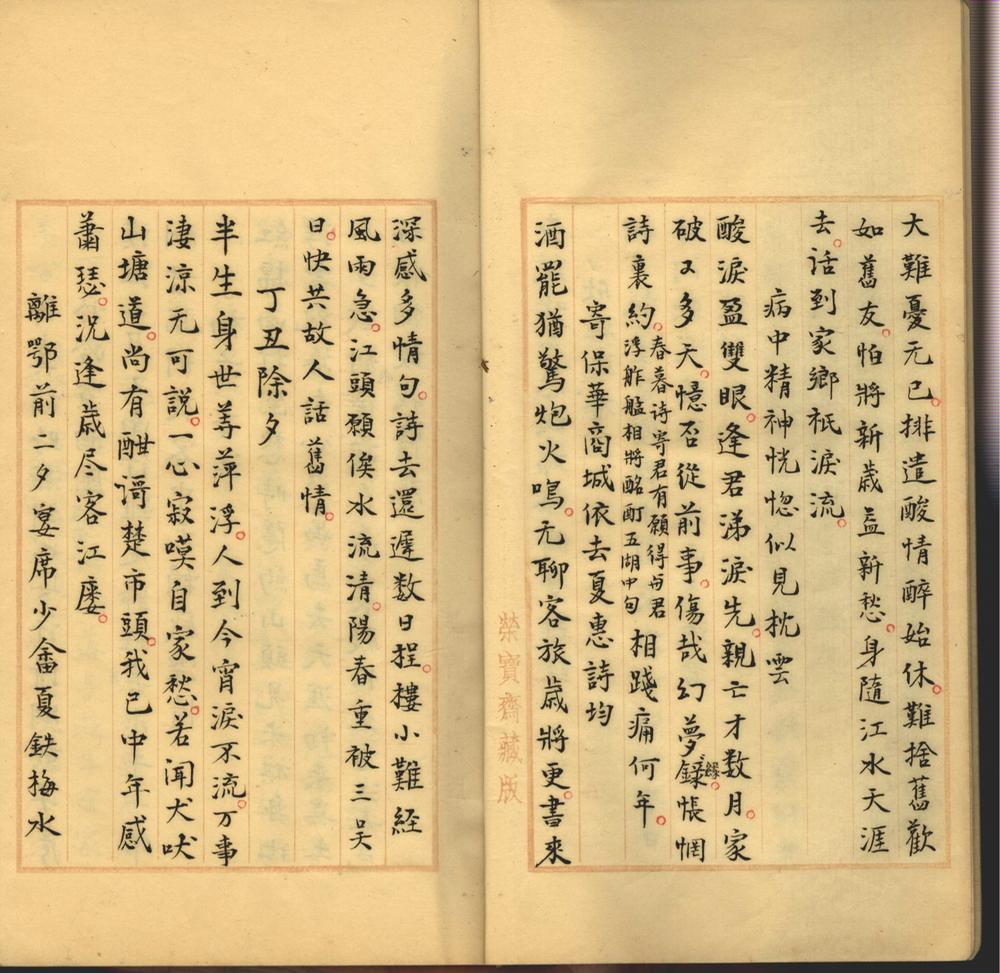 大難憂元已。排遣酸情醉始休。難捨舊歡
如舊友。怕將新歲益新愁。身隨江水天涯
去。話到家鄉祇淚流。
病中精神恍惚似見枕雲
酸淚盈雙眼。逢君涕淚先。親亡才数月。家
破又多天。憶否從前事。傷哉幻夢緣。悵惘
詩裏約。春暮詩寄君有願得与君浮舴艋相將酩酊五湖中句相踐痛何年。
寄保華商城依去夏惠詩均
酒罷猶驚炮火鳴。无聊客旅歲將更。書來
榮寶齋藏版
深感多情句。詩去還遲数日程。樓小難經
風雨急。江頭願俟水流清。陽春重被三吳
日。快共故人話舊情。
丁丑除夕
半生身世等萍浮。人到今宵淚不流。万事
淒涼无可說。一心寂嘆自家愁。若闻犬吠
山塘道。尚有酣謌楚市頭。我已中年感
蕭瑟。況逢歲尽客江廔。
離鄂前二夕宴席少畬夏鉄梅水